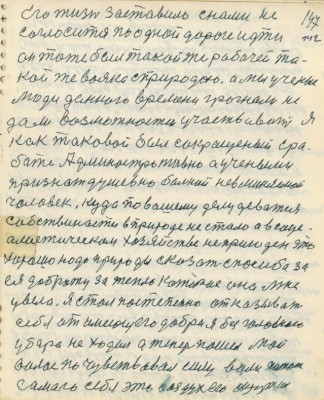 Его жизн заставило снами не 147
согласится поодной дороге идти 142
он тоже был такой же рабачей та-
кой же вояка с природою. а мы ученые
люди данного времени грогнам не
дам возможности участвиват Я
как таковой был сокращеный сра-
боте Администротивно а учеными
признат душевно болной невминяемой
человек, куда по вашему делу деватия
собствиности в природе не стало а в соци-
алистическом хозяйстве не приводен Это
хорошо надо природи сказат способа за
ея доброту за тепло которые она мне
ввела. Я стал постепено отказыват
себя от имеющего добра я без головного
убара не ходил а тепер пошел мой
волос почувствовал силу воли потом
самаго себя это воздух его окружи